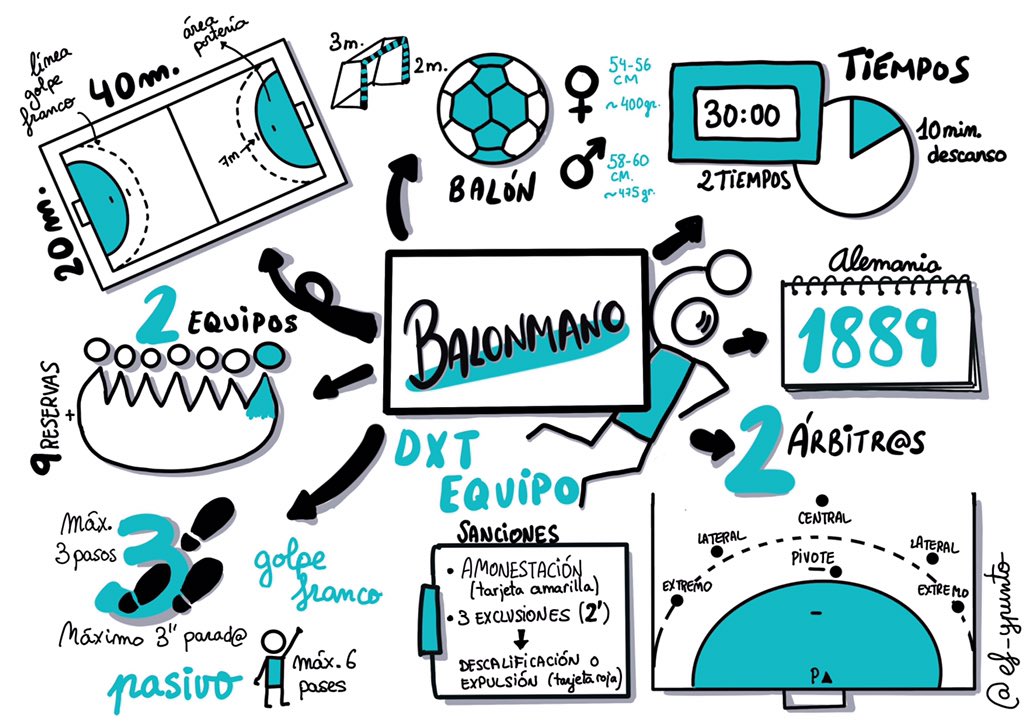 línea
golpe
franco
40m.
área
portería
7m
20m.
3m.
2m.
BALÓN
54-56
CM
~400gr.
58-60
CM.
~475gr.
TIEMPOS
30:00
2 TIEMPOS
10 min.
descanso
Alemania
1889
2 EQUIPOS
9 RESERVAS
+
BALONMANO
DXT
EQUIPO
2 ÁRBITR@S
CENTRAL
LATERAL
LATERAL
PIVOTE
EXTREMO
EXTREMO
P
Máx.
3 pasos
3
golpe
franco
Máximo 3" parad@
pasivo
máx. 6
pases
SANCIONES
• AMONESTACIÓN
(tarjeta amarilla)
• 3 EXCLUSIONES (2')
DESCALIFICACIÓN O
EXPULSIÓN (tarjeta roja)
@ef-ypunto